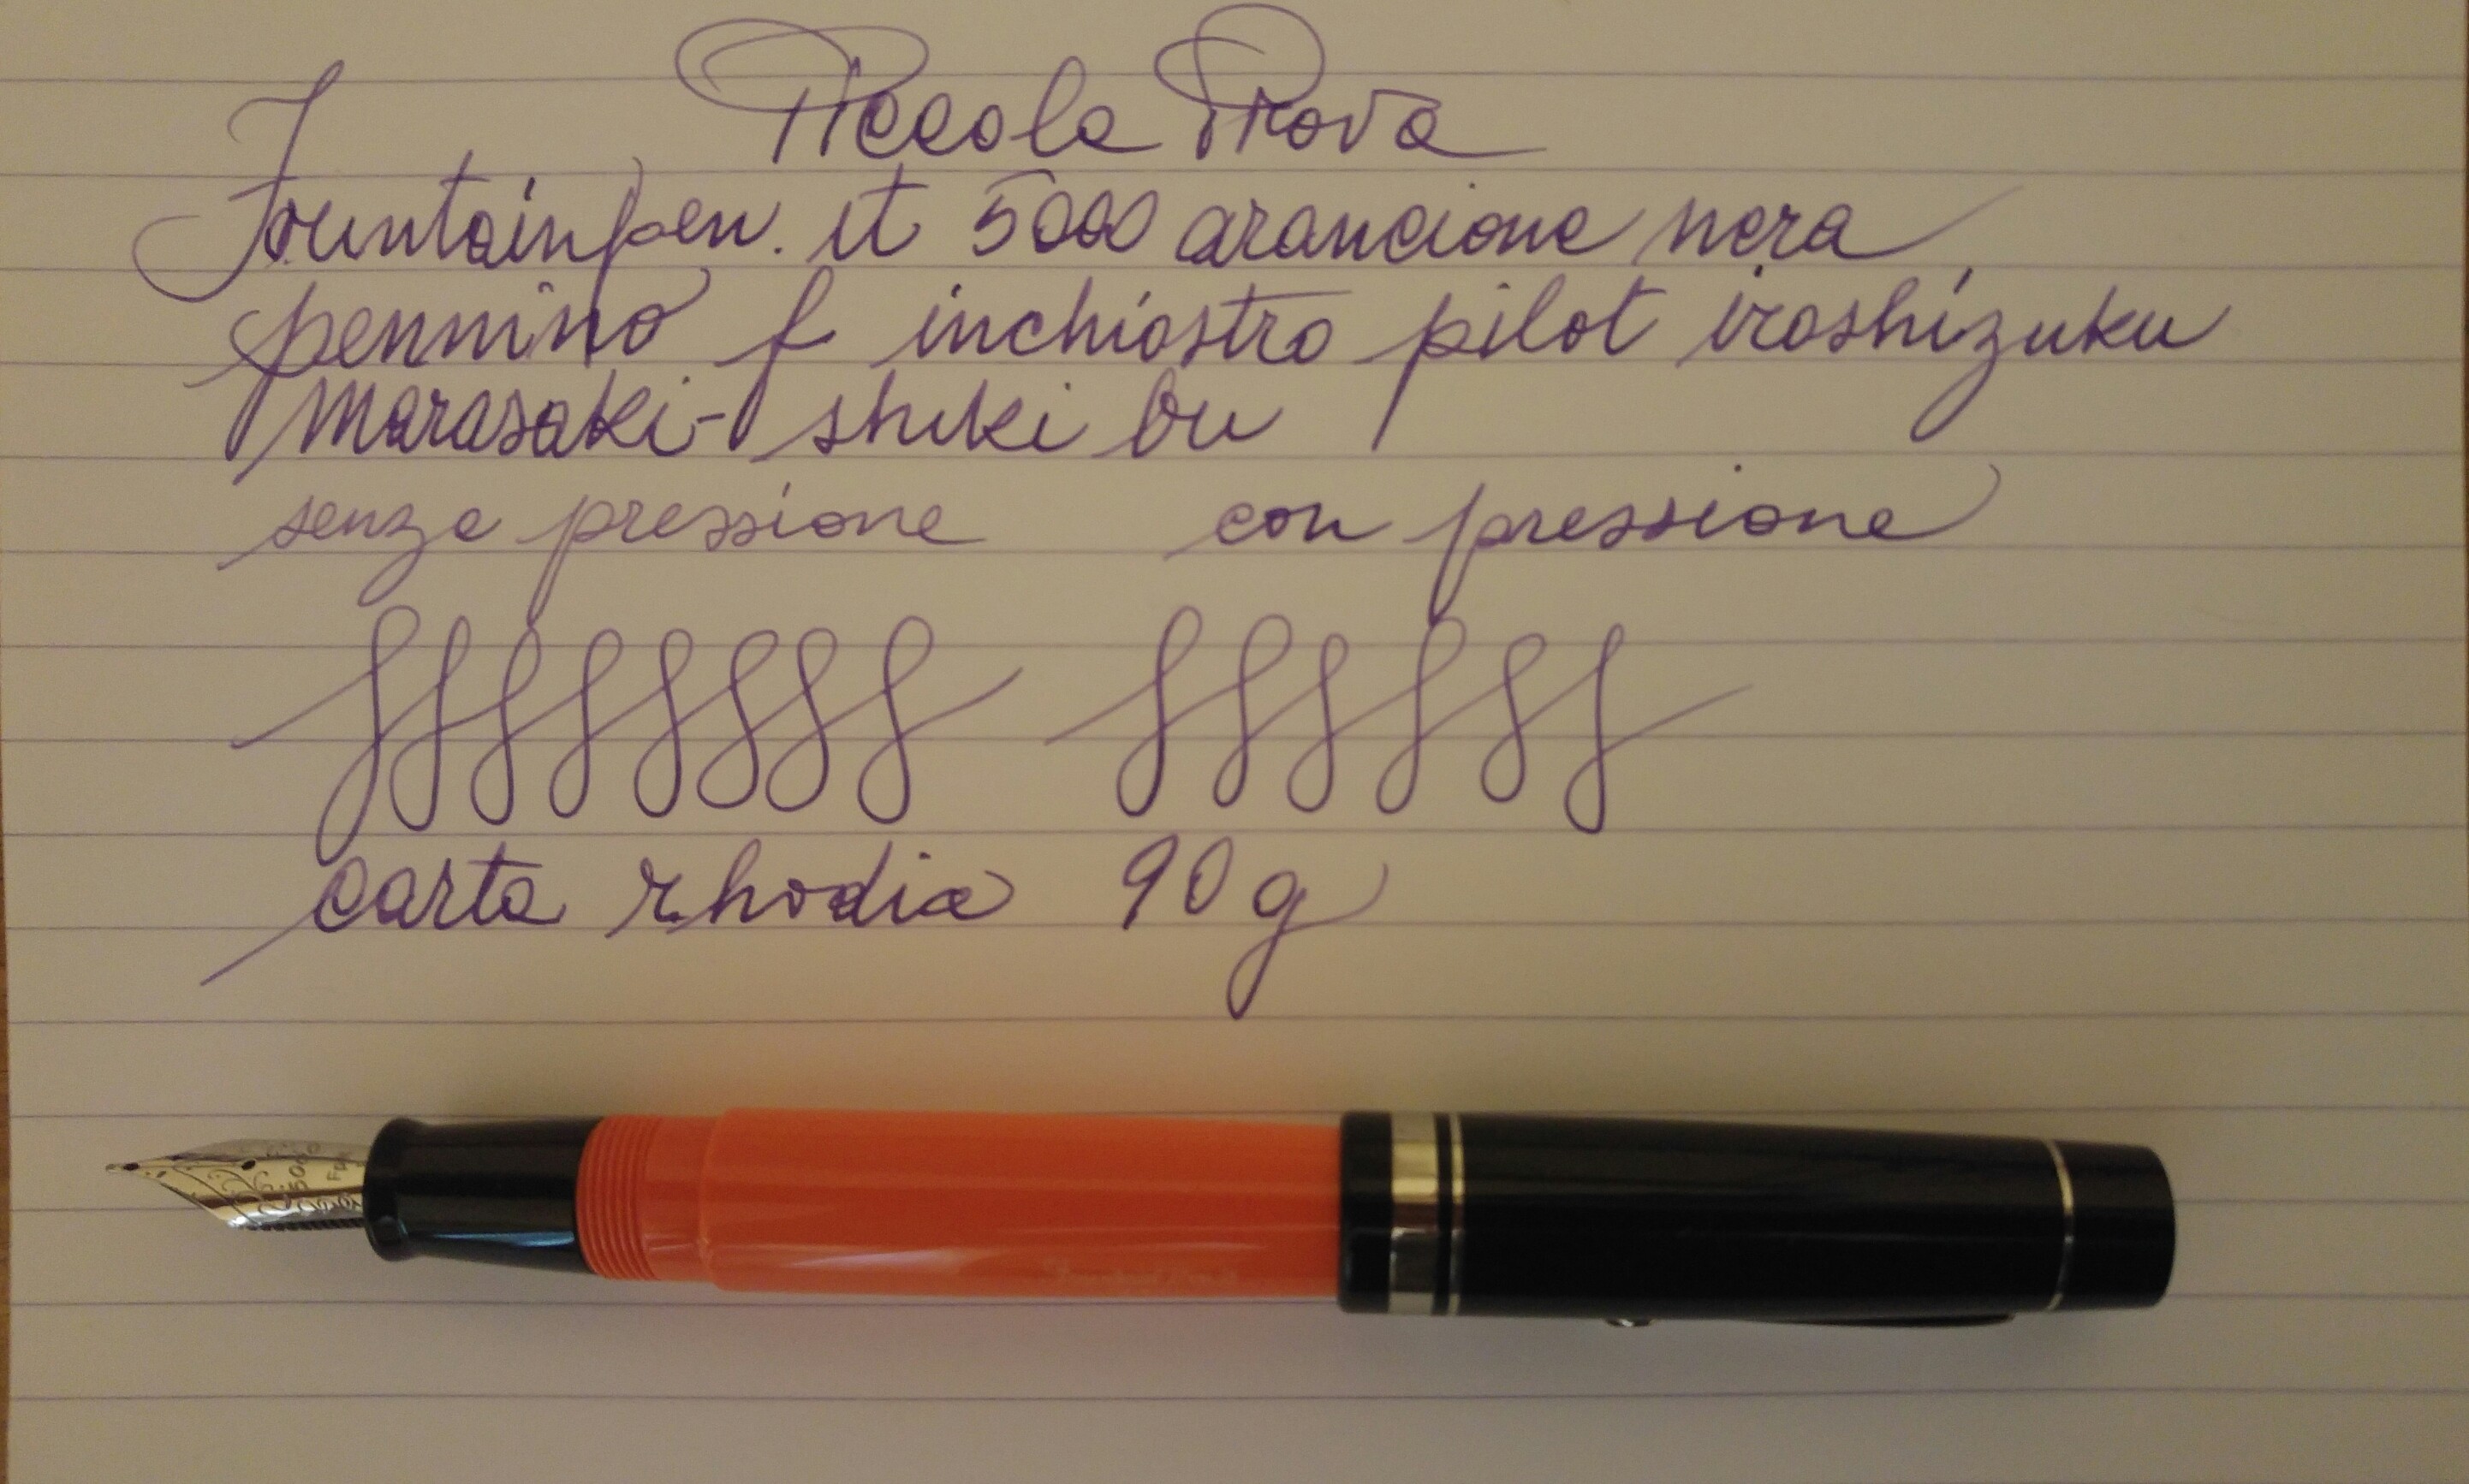 Piccola Prova
Fountainpen.it 5000 arancione nera
pennino f inchiostro pilot iroshizuku
murasaki-shikibu
senza pressione con pressione
carta rhodia 90 g
5000